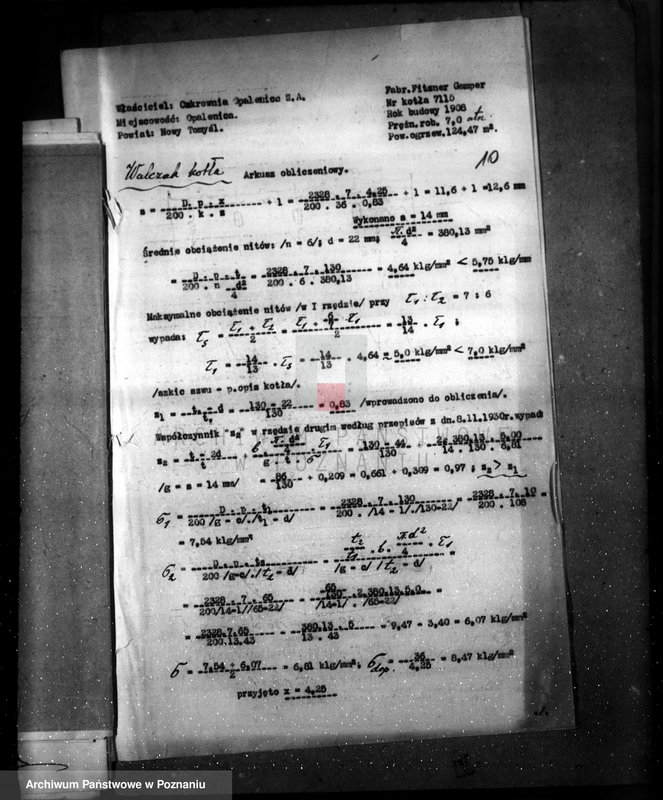 Właściciel: Cukrownia Opalenica S.A.
Miejscowość: Opalenica.
Powiat: Nowy Tomyśl.
Fabr. Fitzner Gamper
Nr kotła 7115
Rok budowy 1908
Prężn. rob. 7,0 atn.
Pow. ogrzew. 124,47 m².
10
Walczak kotła
Arkusz obliczeniowy.
s = D . p . x / 200 . k . z + 1 = 2328 . 7 . 4,25 / 200 . 36 . 0,83 + 1 = 11,6 + 1 = 12,6 mm
Wykonano s = 14 mm
Średnie obciążenie nitów: /n = 6/; d = 22 mm; π.d²/4 = 380,13 mm²
= D . p . t / 200 . n d²/4 = 2328 . 7 . 130 / 200 . 6 . 380,13 = 4,64 klg/mm² < 5,75 klg/mm
Maksymalne obciążenie nitów /w I rzędzie/ przy τ₁ : τ₂ = 7 : 6
wypada: τs = τ₁ + τ₂ / 2 = τ₁ + 6/7 . τ₁ / 2 = 13/14 . τ₁ ;
τ₁ = 14/13 . τs = 14/13 . 4,64 = 5,0 klg/mm² < 7,0 klg/mm²
/szkic szwu - p. opis kotła/.
z₁ = t₁ - d / t₁ = 130 - 22 / 130 = 0,83 /wprowadzono do obliczenia/.
Współczynnik z₂ w rzędzie drugim według przepisów z dn. 8.11.1930r. wypad
z₂ = t - 2d / t + 6 π d²/4 / g . t τ₁/σ = 130 - 44 / 130 + 2.380,13 . 5,00 / 14 . 130 . 6,81
/g = s = 14 mm/ = 86/130 + 0,209 = 0,661 + 0,309 = 0,97 ; z₂ > z₁
σ₁ = D . p . t₁ / 200 /g - c/./t₁ - d/ = 2328 . 7 . 130 / 200 . /14 - 1/./130-22/ = 2328 . 7 . 10 / 200 . 108 =
= 7,54 klg/mm²
σ₂ = D . p . t₂ / 200 /g-c/./t₂ - d/ - t₂/t₁ . b . π d²/4 . τ₁ / /g - c/ /t₂ - d/ =
= 2328 . 7 . 65 / 200/14-1//65-22/ - 65/130 . 2.380,13.5,0 / /14-1/ . /65-22/ =
= 2328.7.65 / 200.13.43 - 380,13 . 5 / 13 . 43 = 9,47 - 3,40 = 6,07 klg/mm²
σ = 7,54 + 6,07 / 2 = 6,81 klg/mm²; σdop. = 36 / 4,25 = 8,47 klg/mm²
przyjęto x = 4,25
./.
Archiwum Państwowe w Poznaniu